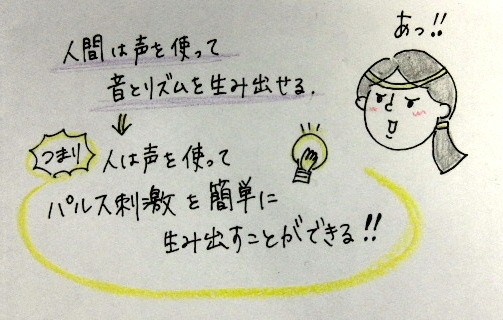 あっ!!
人間は声を使って
音とリズムを生み出せる.
つまり
人は声を使って
パルス刺激を簡単に
生み出すことができる!!